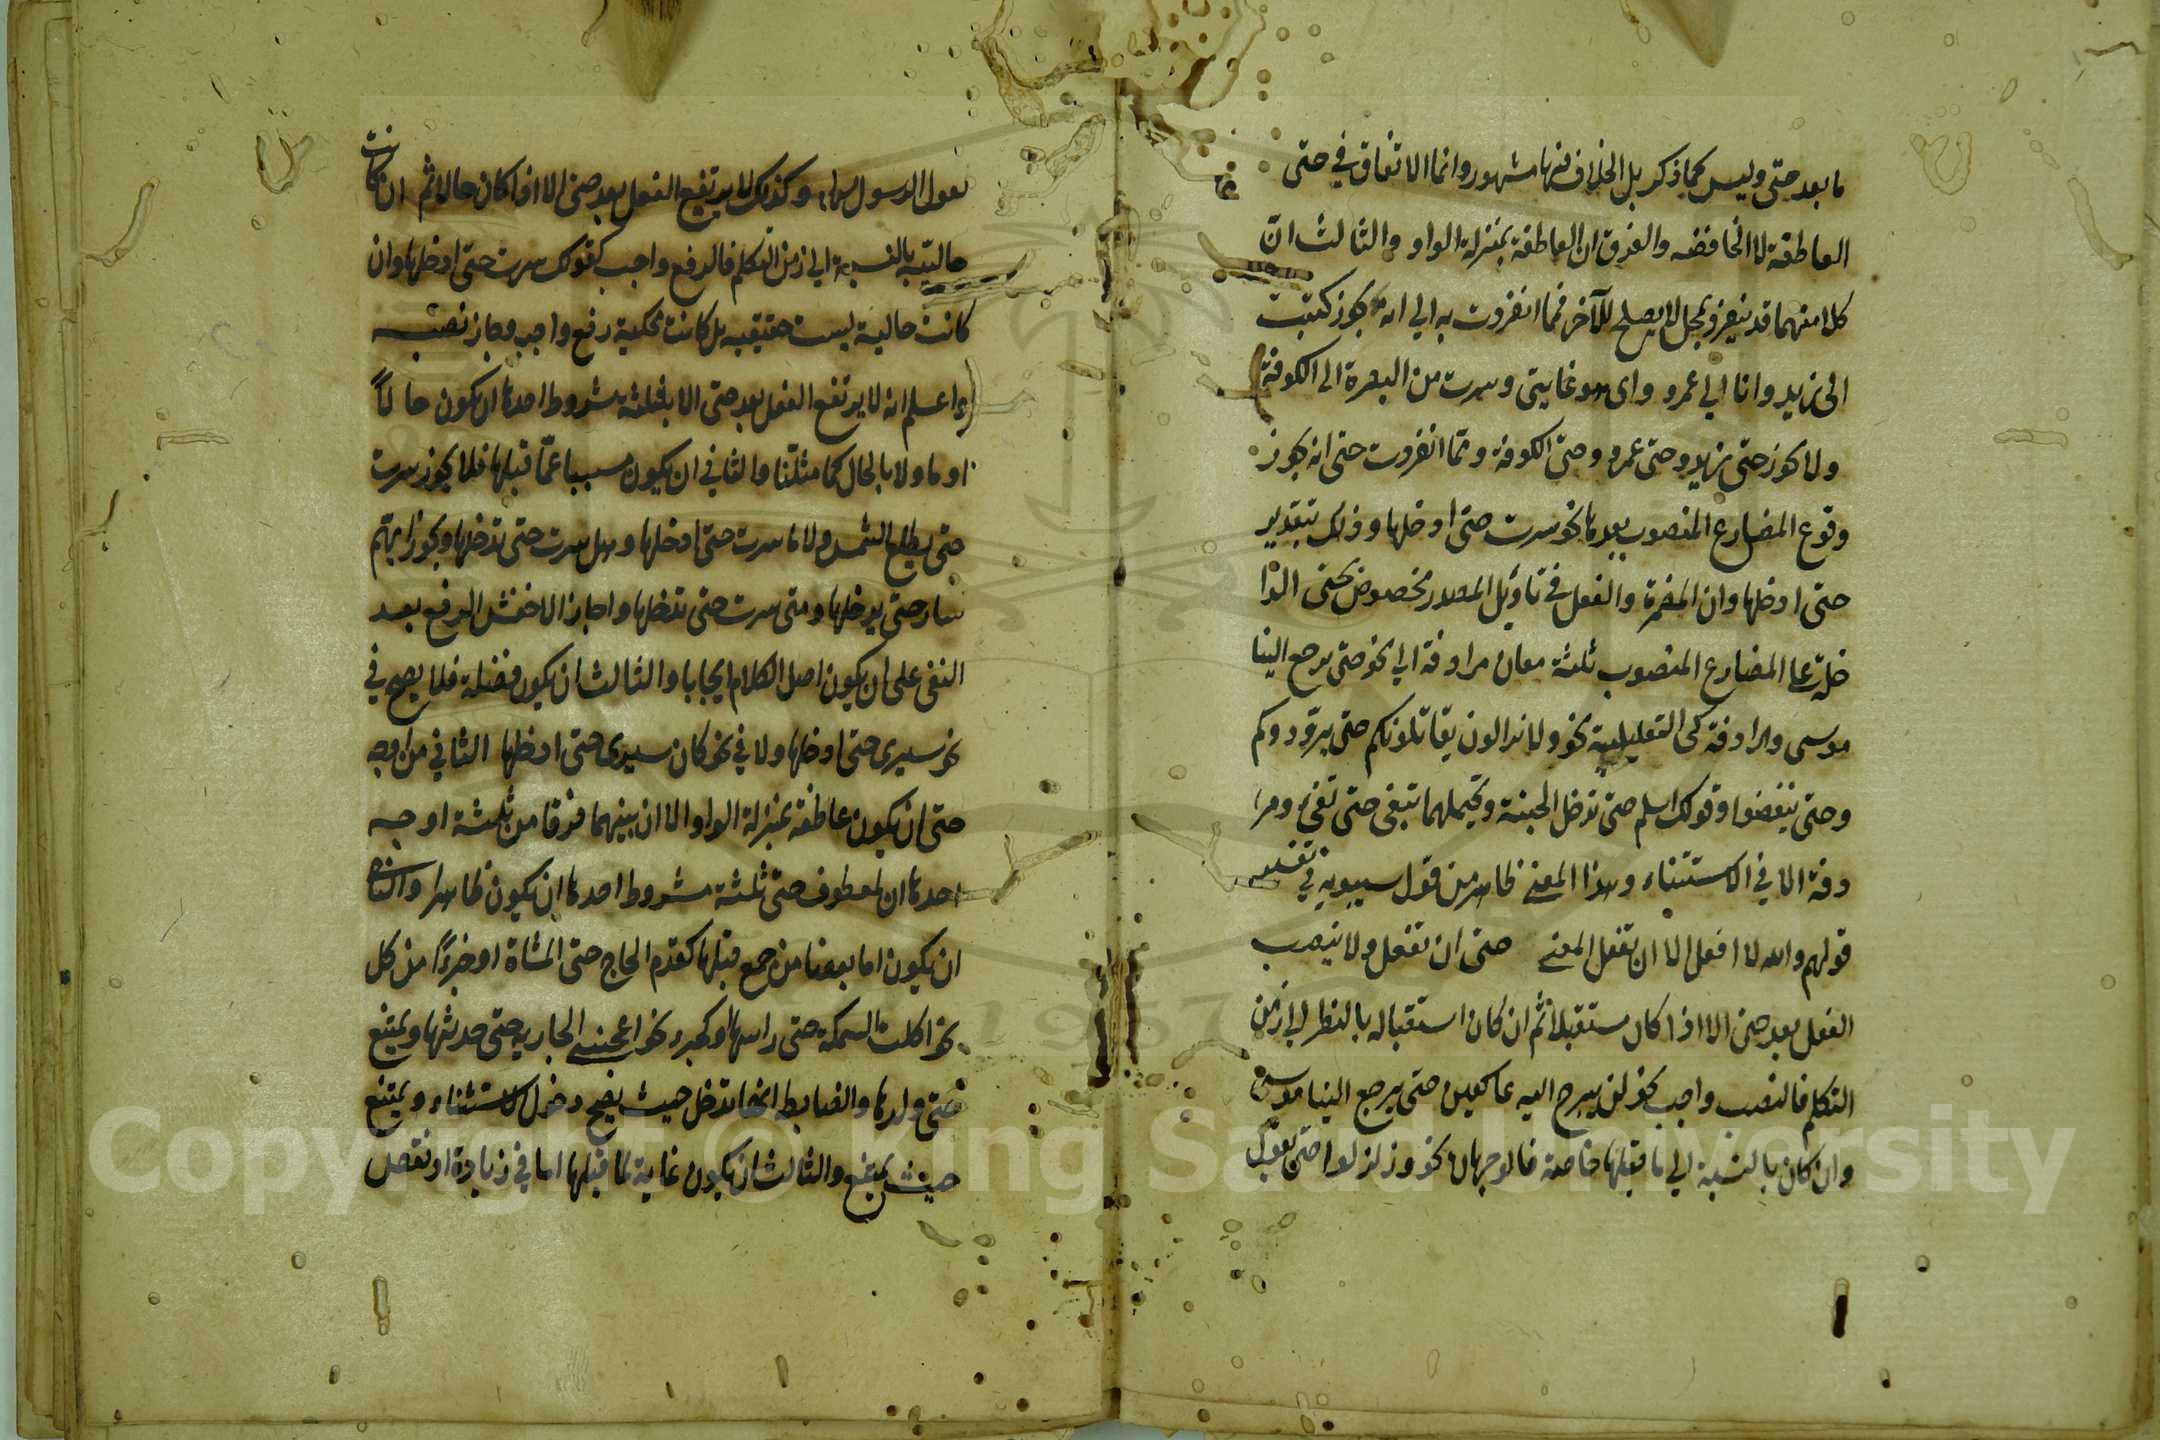 ما بعد حتى وليس كما ذكر بل الخلاف فيها مشهور وانما الاتفاق في حتى
العاطفة لا الخافضه والفرق ان العاطفة بمنزلة الواو والثالث انّ
كلا منهما قد ينفرد بمحل لا يصلح للآخر فمما انفردت به الى انه يجوز كتبت
الى زيد وانا الى عمرو واى هو غايتى وسرت من البصرة الى الكوفة
ولا يجوز حتى زيد وحتى عمرو وحتى الكوفة ومما انفردت حتى انه يجوز
وقوع المضارع المنصوب بعدها نحو سرت حتى ادخلها وذلك بتقدير
حتى ادخلها وان المضمرة والفعل في تاويل المصدر مخصوص بحتى الدا
خلة على المضارع المنصوب ثلثة معان مرادفة الى نحو حتى يرجع الينا
موسى ومرادفة كى التعليلية نحو ولا يزالون يقاتلونكم حتى يردوكم
وحتى ينفضوا وقولك اسلم حتى تدخل الجنة ويحتملهما تبغى حتى تفئ ومرا
دفة الا في الاستثناء وهذا المعنى ظاهر من قول سيبويه في تفسير
قولهم والله لا افعل الا ان تفعل المعنى حتى ان تفعل ولا ينصب
الفعل بعد حتى الا اذا كان مستقبلا ثم ان كان استقباله بالنظر الى زمن
التكلم فالنصب واجب نحو لن نبرح عليه عاكفين حتى يرجع الينا موسى
وان كان بالنسبة الى ما قبلها خاصة فالوجهان نحو وزلزلوا حتى يقول
يقول الرسول وكذلك لا يرتفع الفعل بعد حتى الا اذا كان حالا ثم ان كانت
حاليته بالنسبة الى زمن التكلم فالرفع واجب كقولك سرت حتى ادخلها وان
كانت حالية ليست حقيقيه بل كانت محكية رفع واجب وجاز نصبه
واعلم انه لا يرتفع الفعل بعد حتى الا بثلثة شروط احدها ان يكون حالا
او ماولا بالحال كما مثلنا والثاني ان يكون مسببا عمّا قبلها فلا يجوز سرت
حتى يطلع الشمس ولا ما سرت حتى ادخلها وهل سرت حتى تدخلها ويجوز ايهم
سار حتى يدخلها ومتى سرت حتى تدخلها واجاز الاخفش الرفع بعد
النفى على ان يكون اصل الكلام ايجابا والثالث ان يكون فضلة فلا يصح في
نحو سيرى حتى ادخلها ولا في نحو كان سيرى حتى ادخلها الثاني من اوجه
حتى ان يكون عاطفة بمنزلة الواو الا ان بينهما فرقا من ثلثة اوجه
احدها ان لمعطوف حتى ثلثة شروط احدها ان يكون ظاهرا والثاني
ان يكون اما بعضا من جمع قبلها كقدم الحاج حتى المشاة او جزءًا من كل
نحو اكلت السمكة حتى راسها او كجزء نحو اعجبنى الجارية حتى حديثها ويمتنع
حتى ولدها والضابط انها تدخل حيث يصح دخول الاستثناء ويمتنع
حيث يمتنع والثالث ان يكون غاية لما قبلها اما في زيادة او نقص